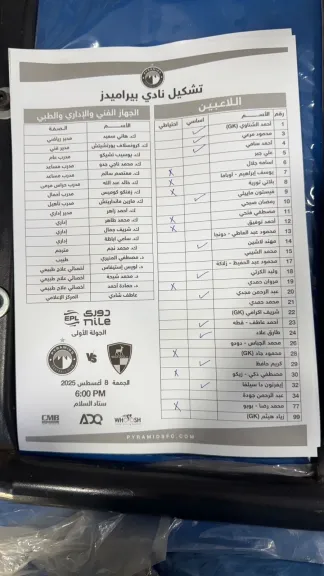 تشكيل نادي بيراميدز
اللاعبين
رقم الأســـم اساسي احتياطي
1 أحمد الشناوي (GK)
3 محمود مرعي
4 أحمد سامي
5 علي جبر
6 أسامة جلال
7 يوسف إبراهيم - أوباما X
8 بلاتي توريه X
9 فيستون ماييلي X
10 رمضان صبحي
11 مصطفى فتحي
12 أحمد توفيق X
13 محمود عبد العاطي - دونجا X
14 مهند لاشين
15 محمد الشيبي
وليد الكرتي
مروان حمدي X
20 عبد الرحمن مجدي
محمد حمدي
22 شريف إكرامي (GK)
23 أحمد عاطف - قطه
24 طارق علاء
25 محمود جاد (GK) X
29 كريم حافظ
30 مصطفى زكي - زيكو X
32 إيفرتون دا سيلفا
34 عبد الرحمن جودة
77 محمد رضا - بوبو X
99 زياد هيثم (GK)
الجهاز الفني والإداري والطبي
الأســـم الصفة
ك. هاني سعيد مدير رياضي
ك. كرونسلاف يورتشيتش مدير فني
مدرب عام
مدرب مساعد
ك. معتصم سالم مدرب مساعد
ك. خالد عبد الله مدرب حراس مرمى
مدرب أحمال
مدرب تأهيل
ك. أحمد زاهر مدير إداري
ك. محمد طاهر إداري
ك. شريف جمال إداري
إداري
ك. محمد نجم مترجم
د. مصطفى المنيري طبيب
أخصائي علاج طبيعي
د. محمد شيحة أخصائي علاج طبيعي
د. حمادة أحمد أخصائي علاج طبيعي
عاطف شادي المركز الإعلامي
دوري nile
EPL
الجولة الأولى
VS
الجمعة 8 أغسطس 2025
6:00 PM
ستاد السلام
CMB ADQ WHOOSH
PYRAMIDSFC.COM